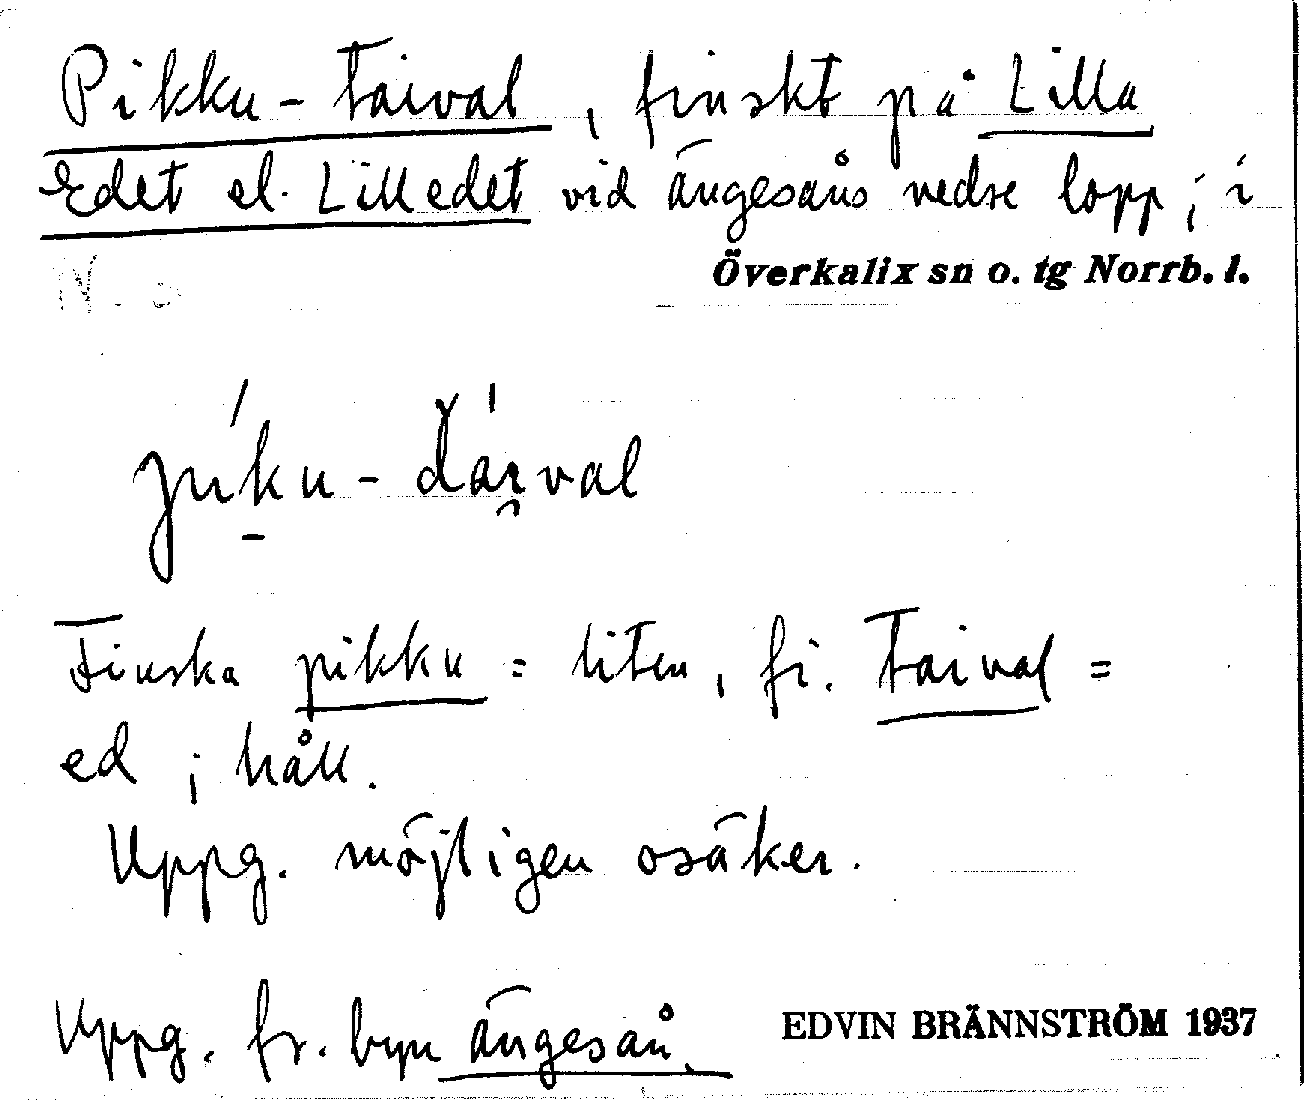 Pikku-taival, finskt på Lilla
Edet el. Lilledet vid ängesåns nedre lopp; i
Överkalix sn o. tg Norrb. l.
Finska pikku = liten, fi. taival =
ed ; håll.
Uppg. möjligen osäker.
Uppg. fr. byn ängesån.
EDVIN BRÄNNSTRÖM 1937